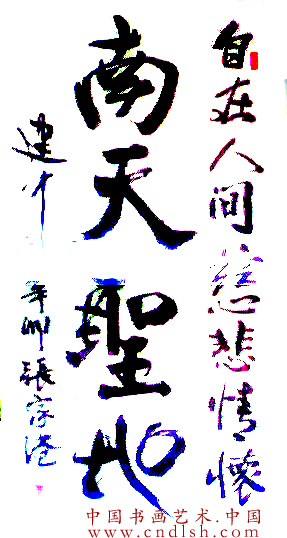 自在人间慈悲情懷
南天聖地
建中
辛卯張家港
中国书画艺术.中国
www.cndlsh.com